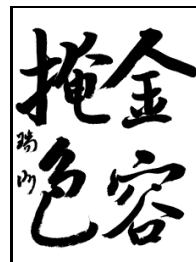 金容
掩色
瑞川